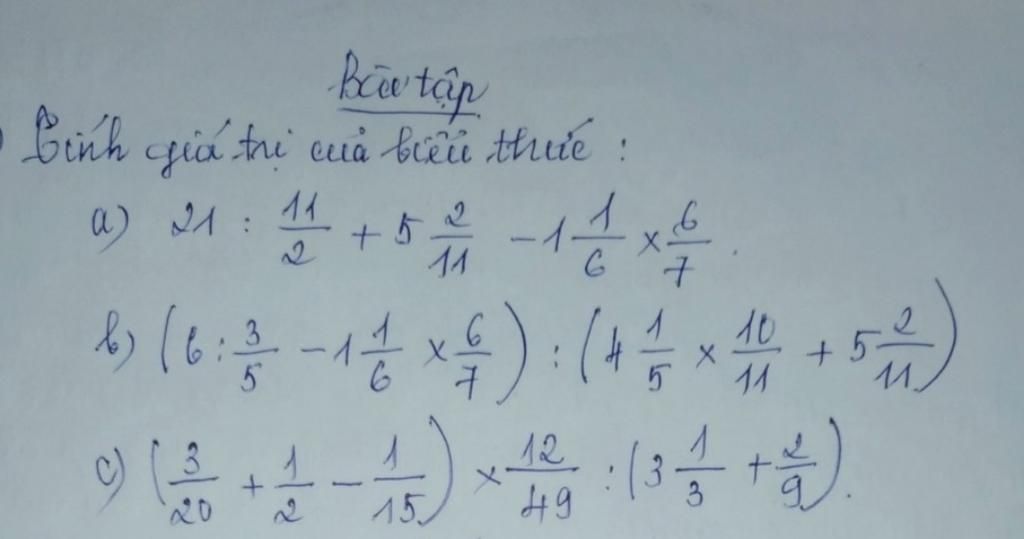 Bài tập
) Tính giá trị của biểu thức :
a) 21 : 11/2 + 5 2/11 - 1 1/6 × 6/7 .
b) (6 : 3/5 - 1 1/6 × 6/7) : (4 1/5 × 10/11 + 5 2/11)
c) (3/20 + 1/2 - 1/15) × 12/49 : (3 1/3 + 2/9).